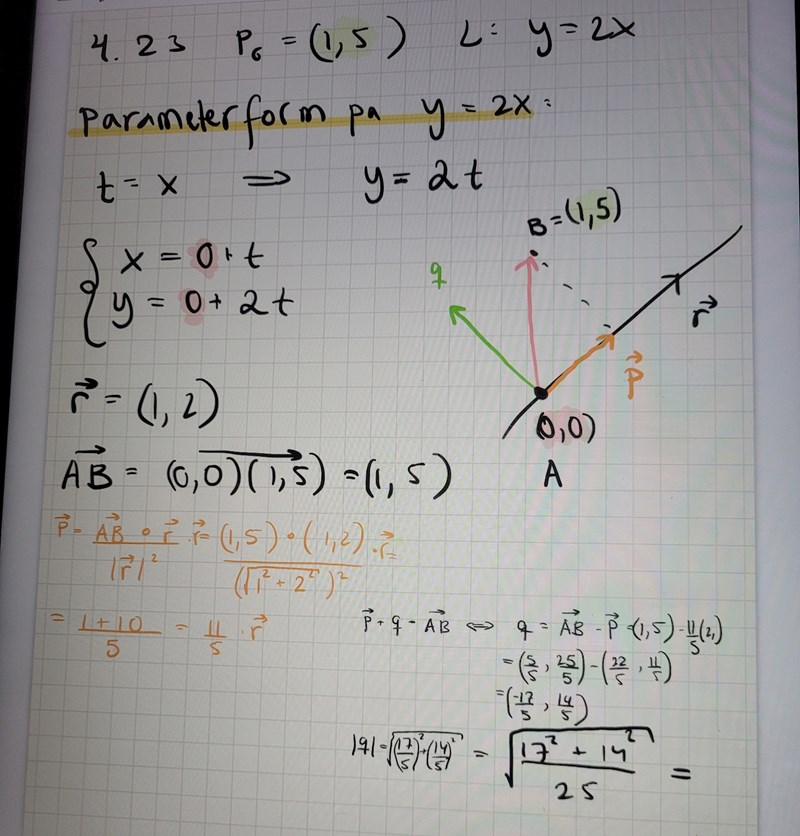 4.23 P₀ = (1,5) L: y = 2x
Parameterform pa y = 2x:
t = x ⇒ y = 2t
{ x = 0 + t
y = 0 + 2t
B = (1,5)
q
r⃗
p⃗
(0,0)
A
r⃗ = (1, 2)
AB⃗ = (0,0)(1,5) = (1, 5)
p⃗ = AB⃗ ∘ r⃗ / |r⃗|² · r⃗ = (1,5) ∘ (1,2) / (√1² + 2²)² · r⃗ =
= 1+10 / 5 = 11/5 · r⃗
p⃗ + q = AB⃗ ⇔ q = AB⃗ - p⃗ = (1,5) - 11/5 (2,)
= (5/5, 25/5) - (22/5, 11/5)
= (-17/5, 14/5)
|q| = √(17/5)² + (14/5)² = √17² + 14² / 25 =